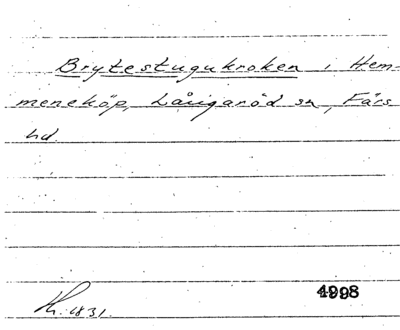 Brytestugukroken i Hem-
meneköp, Långaröd sn, Färs
hd.
1831.
4998